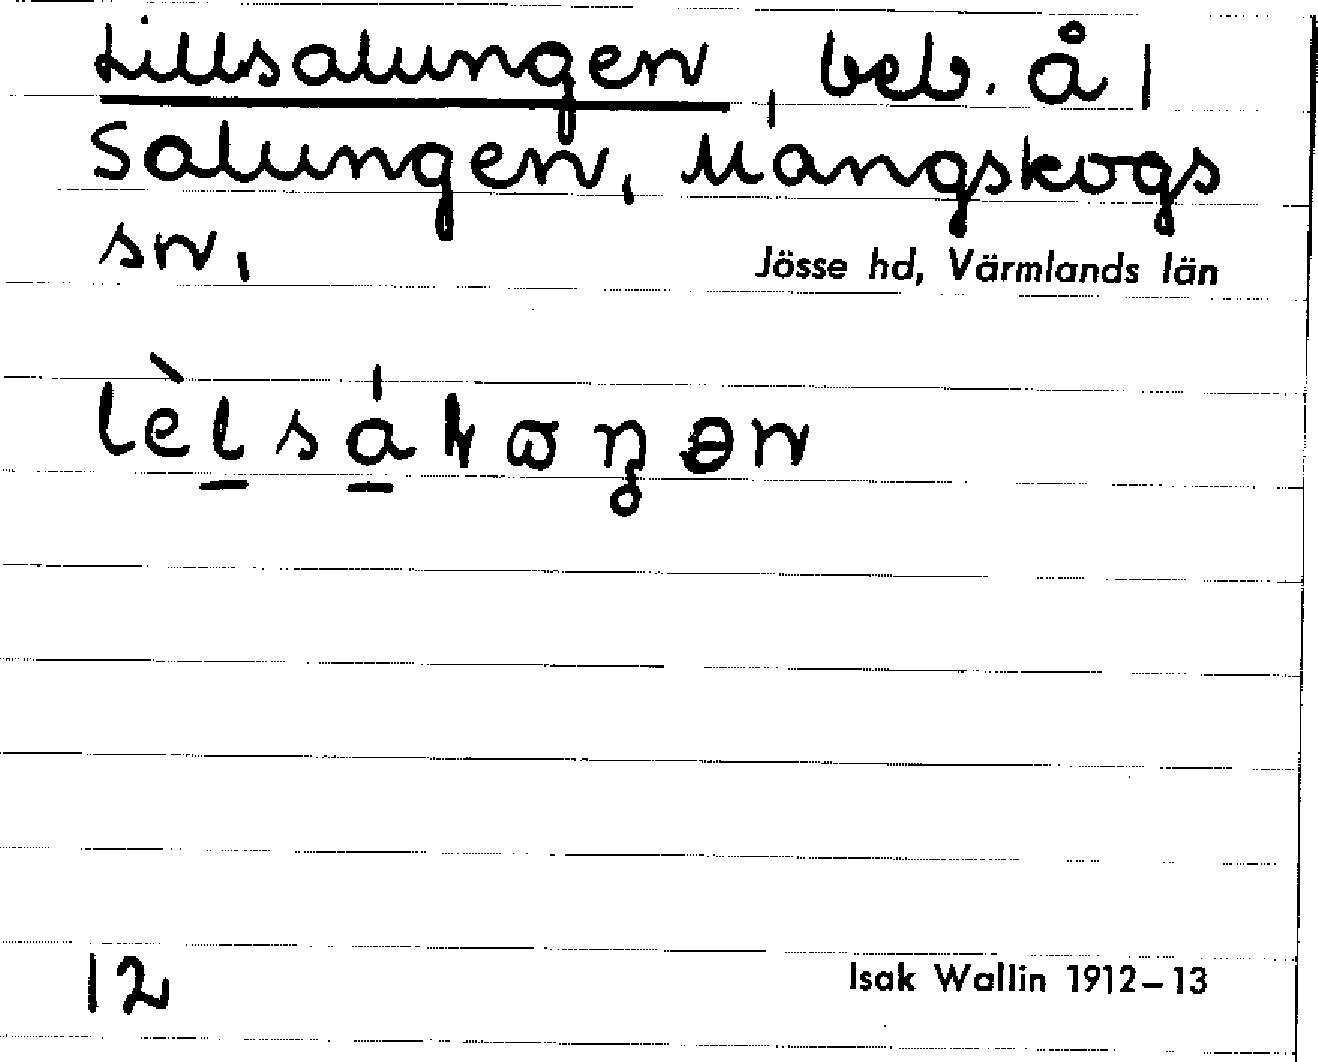 Lillsalungen, beb. å 1
Salungen, Mangskogs
sn,
Jösse hd, Värmlands län
12
Isak Wallin 1912–13